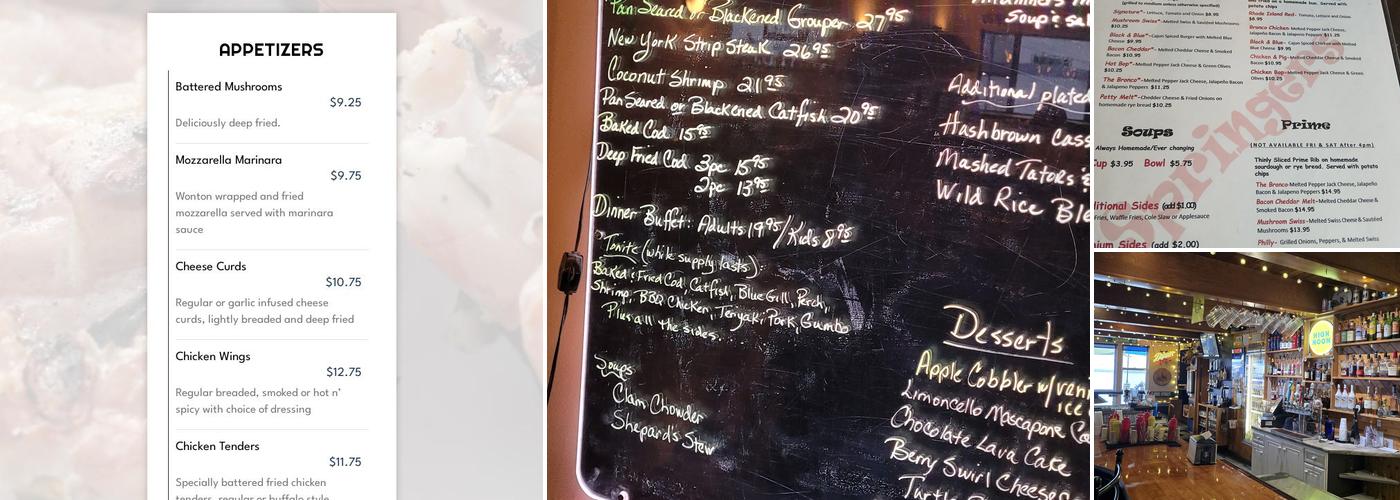 APPETIZERS
Battered Mushrooms
$9.25
Deliciously deep fried.
Mozzarella Marinara
$9.75
Wonton wrapped and fried
mozzarella served with marinara
sauce
Cheese Curds
$10.75
Regular or garlic infused cheese
curds, lightly breaded and deep fried
Chicken Wings
$12.75
Regular breaded, smoked or hot n'
spicy with choice of dressing
Chicken Tenders
$11.75
Specially battered fried chicken
tenders, regular or buffalo style
Pan Seared or Blackened Grouper 27.95
New York Strip Steak 26.95
Coconut Shrimp 21.95
Pan Seared or Blackened Catfish 20.95
Baked Cod 15.95
Deep Fried Cod 3pc 15.95
2pc 13.95
Dinner Buffet: Adults 19.95/Kids 8.95
Tonite (while supply lasts):
Baked & Fried Cod, Catfish, Blue Gill, Perch,
Shrimp, BBQ Chicken, Teriyaki Pork, Gumbo
Plus all the sides...
Soups
Clam Chowder
Shepard's Stew
Soup & sal
Additional plated
Hashbrown Cass
Mashed Tators &
Wild Rice Ble
Desserts
Apple Cobbler w/vani
ice
Limoncello Mascapone Ca
Chocolate Lava Cake
Berry Swirl Cheesec
(grilled to medium unless otherwise specified)
Signature*- Lettuce, Tomato and Onion $8.95
Mushroom Swiss*-Melted Swiss & Sautéed Mushrooms
$10.25
Black & Blue*- Cajun Spiced Burger with Melted Blue
Cheese $9.95
Bacon Cheddar*- Melted Cheddar Cheese & Smoked
Bacon $10.95
Hot Bop*-Melted Pepper Jack Cheese & Green Olives
$10.25
The Bronco*-Melted Pepper Jack Cheese, Jalapeño Bacon
& Jalapeno Peppers $11.25
Patty Melt*-Chedder Cheese & Fried Onions on
homemade rye bread $10.25
Soups
Always Homemade/Ever changing
Cup $3.95 Bowl $5.75
ditional Sides (add $1.00)
Fries, Waffle Fries, Cole Slaw or Applesauce
mium Sides (add $2.00)
potato chips
Rhode Island Red- Tomato, Lettuce and Onion
$8.95
Bronco Chicken-Melted Pepper Jack Cheese, Jalapeño
Bacon & Jalapeno Peppers $11.25
Black & Blue- Cajun Chicken with Melted
Blue Cheese $9.95
Chicken & Pig-Melted Cheddar Cheese & Smoked
Bacon $10.95
Chicken Bop-Melted Pepper Jack Cheese & Green
Olives $10.25
Prime
(NOT AVAILABLE FRI & SAT After 4pm)
Thinly Sliced Prime Rib on homemade
sourdough or rye bread. Served with potato
chips
The Bronco-Melted Pepper Jack Cheese, Jalapeño
Bacon & Jalapeno Peppers $14.95
Bacon Cheddar Melt-Melted Cheddar Cheese &
Smoked Bacon $14.95
Mushroom Swiss-Melted Swiss Cheese & Sautéed
Mushrooms $13.95
Philly- Grilled Onions, Peppers, & Melted Swiss
Springers
HIGH
NOON